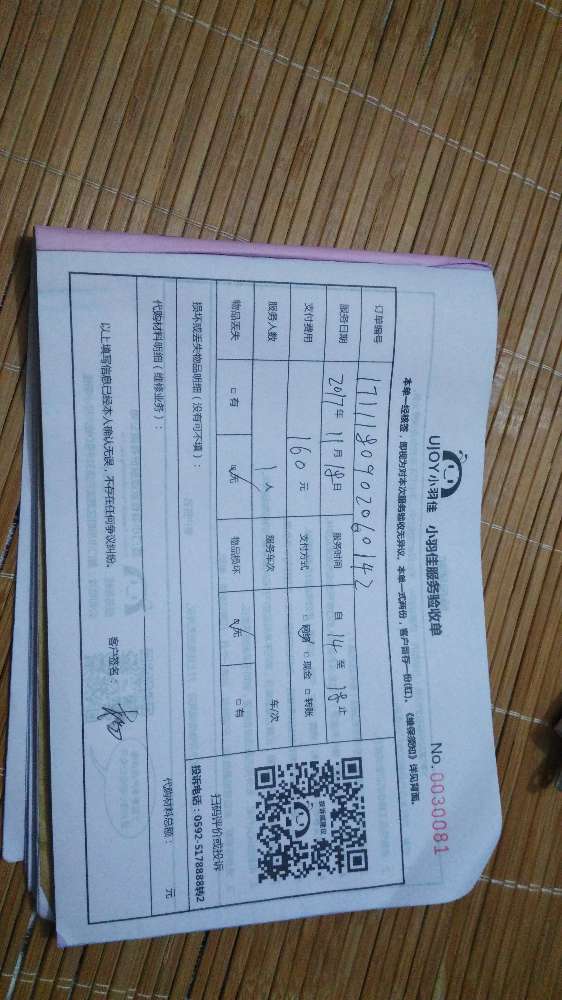 UJOY小羽佳 小羽佳服务验收单 No.0030081
本单一经核签，即视为对本次服务验收无异议。本单一式两份，客户留存一份(红)。《维保须知》详见背面。
订单编号 171118090206014 2
服务日期 2017年 11月 18日 服务时间 自 14 至 18 止
支付费用 160 元 支付方式 网络 □现金 □转账
服务人数 1 人 服务车次 车/次
物品丢失 □有 无 物品损坏 无 □有
损坏或丢失物品明细（没有可不填）：
代购材料明细（维修业务）：
代购材料总额： 元
以上填写信息已经本人确认无误，不存在任何争议纠纷。
客户签名：
投诉或建议
扫码评价或投诉
投诉电话：0592-5178888转2